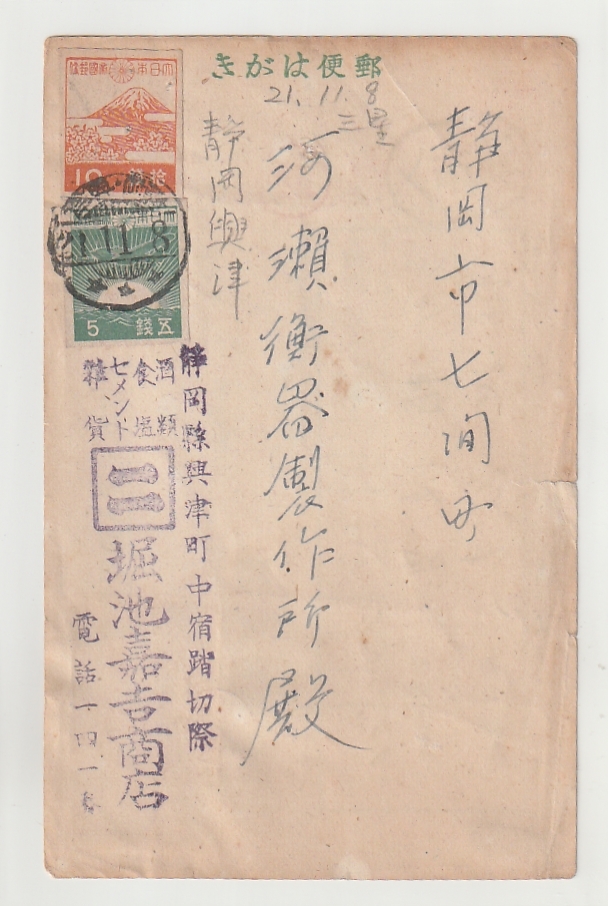 きがはゝ便郵
21. 11. 8
三星
静岡市七間町
河瀬衡器製作所殿
静岡興津
大日本帝国郵便
10
拾
21.11.8
5
五銭
静岡縣興津町中宿踏切際
酒類
食塩
セメント
雑貨
二二
堀池嘉吉商店
電話一四一番